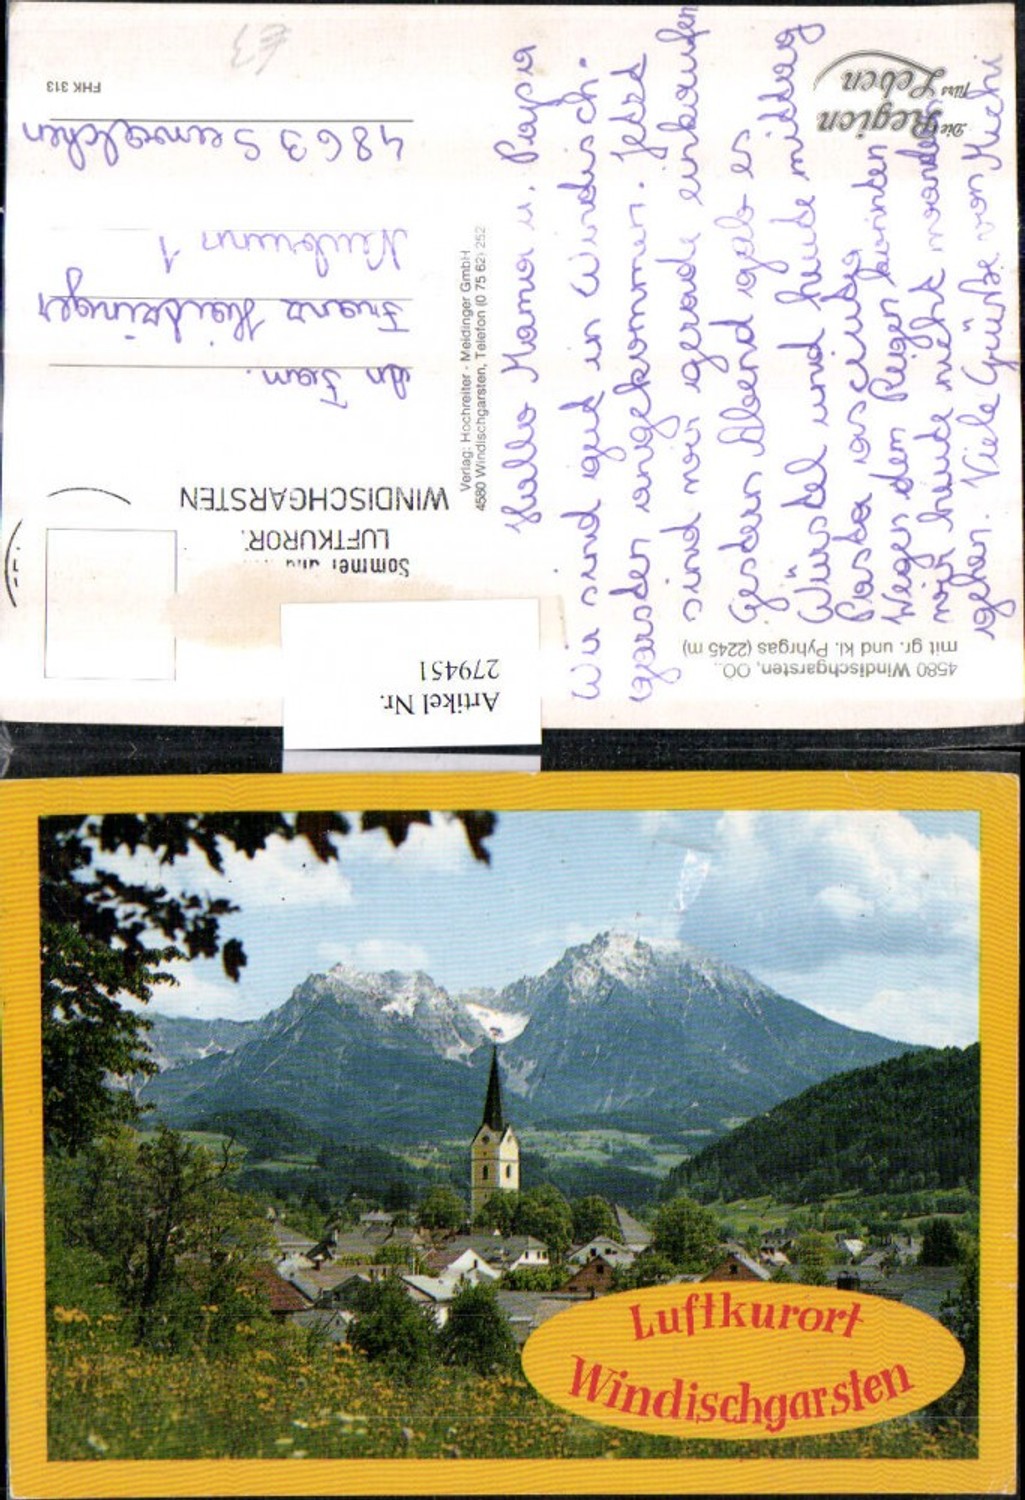 FHK 313
£3
4863 Seewalchen
Neubrunn 1
Franz Haitzinger
An Fam.
WINDISCHGARSTEN
LUFTKUROR
Sommer und
Verlag: Hochreiter - Meidinger GmbH
4580 Windischgarsten, Telefon (0 75 62) 252
Die
Region
fürs
Leben
Hallo Mama u. Papa
Wir sind gut in Windisch-
garsten angekommen. Jetzt
sind wir gerade einkaufen
Gestern Abend gab es
Würstel und heute mittag
Pasta asciutta
Wegen dem Regen konnten
wir heute nicht wandern
gehen. Viele Grüße von Michi
4580 Windischgarsten, OÖ.,
mit gr. und kl. Pyhrgas (2245 m)
Artikel Nr.
279451
Luftkurort
Windischgarsten